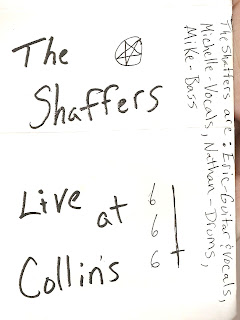 The
Shaffers
Live at
Collin's
6
6
6
The Shaffers are: Eric-Guitar & Vocals,
Michelle-Vocals, Nathan-Drums,
Mike-Bass